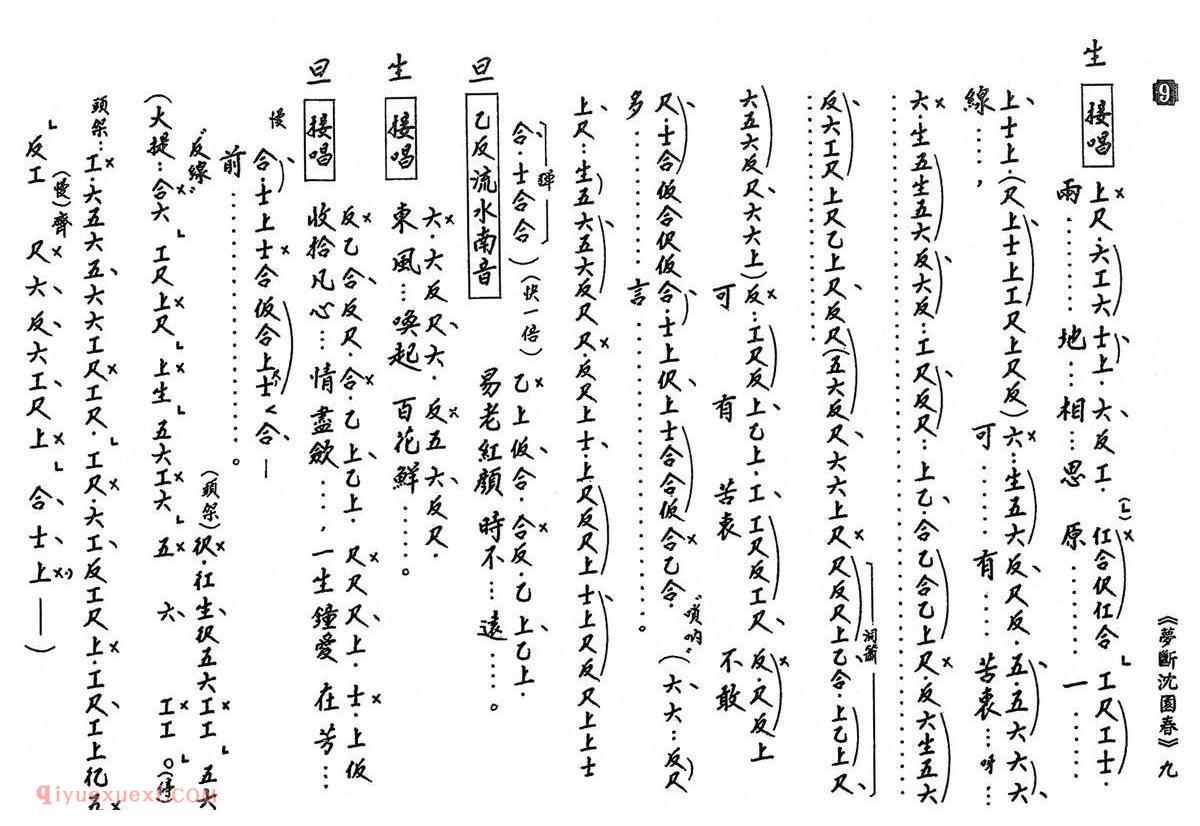 9
《夢斷沈園春》九
生 接唱
上尺.六工六士上.六反工.仜合伬仜合工尺工士.
雨……地…相…思 原……一……
上士上.(尺上士上工尺上尺反)六…生五六反尺反五.五六六六
線……, 可……有……苦衷…呀…
六.生五生五六反六反…工尺反尺…上乙.合乙合乙上尺.反六生五六
反六工尺上尺乙上尺反尺(五六反尺.六六上尺.尺反尺上乙合.上乙上尺
洞簫
六五六反尺.六六上)反…工尺反上乙上.工.工尺反工尺.反.尺反上
可 有 苦衷 不敢
尺.士合仮合伬仮合.士上伬上士合合仮合乙合.(六六…反尺
多……言……。
"嗩吶"
上尺…生五六五六反尺尺.反尺上士.上尺反尺上士上尺反尺上上士
合.士合合)(快一倍)乙上仮合.合反.乙上乙上.
旦 乙反流水南音
易老紅顏 時不…遠……。
生 接唱
六.六反尺六.反五六反尺.
東風…喚起 百花鮮……。
旦 接唱
反乙合反尺.合.乙上乙上.尺尺尺上士.上仮
收拾凡心…情盡斂……,一生鐘愛 在芳…
慢
合.士上士合仮合上士<合—
前……。
(頭架)伬.仩生伬五六工工五六
"反線"
(大提…合六工尺上尺上生五六工六五六工工。
頭架…工.六五六五六六工尺工尺.工尺.六工反工尺上.工尺工上
(慢)齊
反工尺六反六工尺上合士上——)
qiyuexuexi.COM